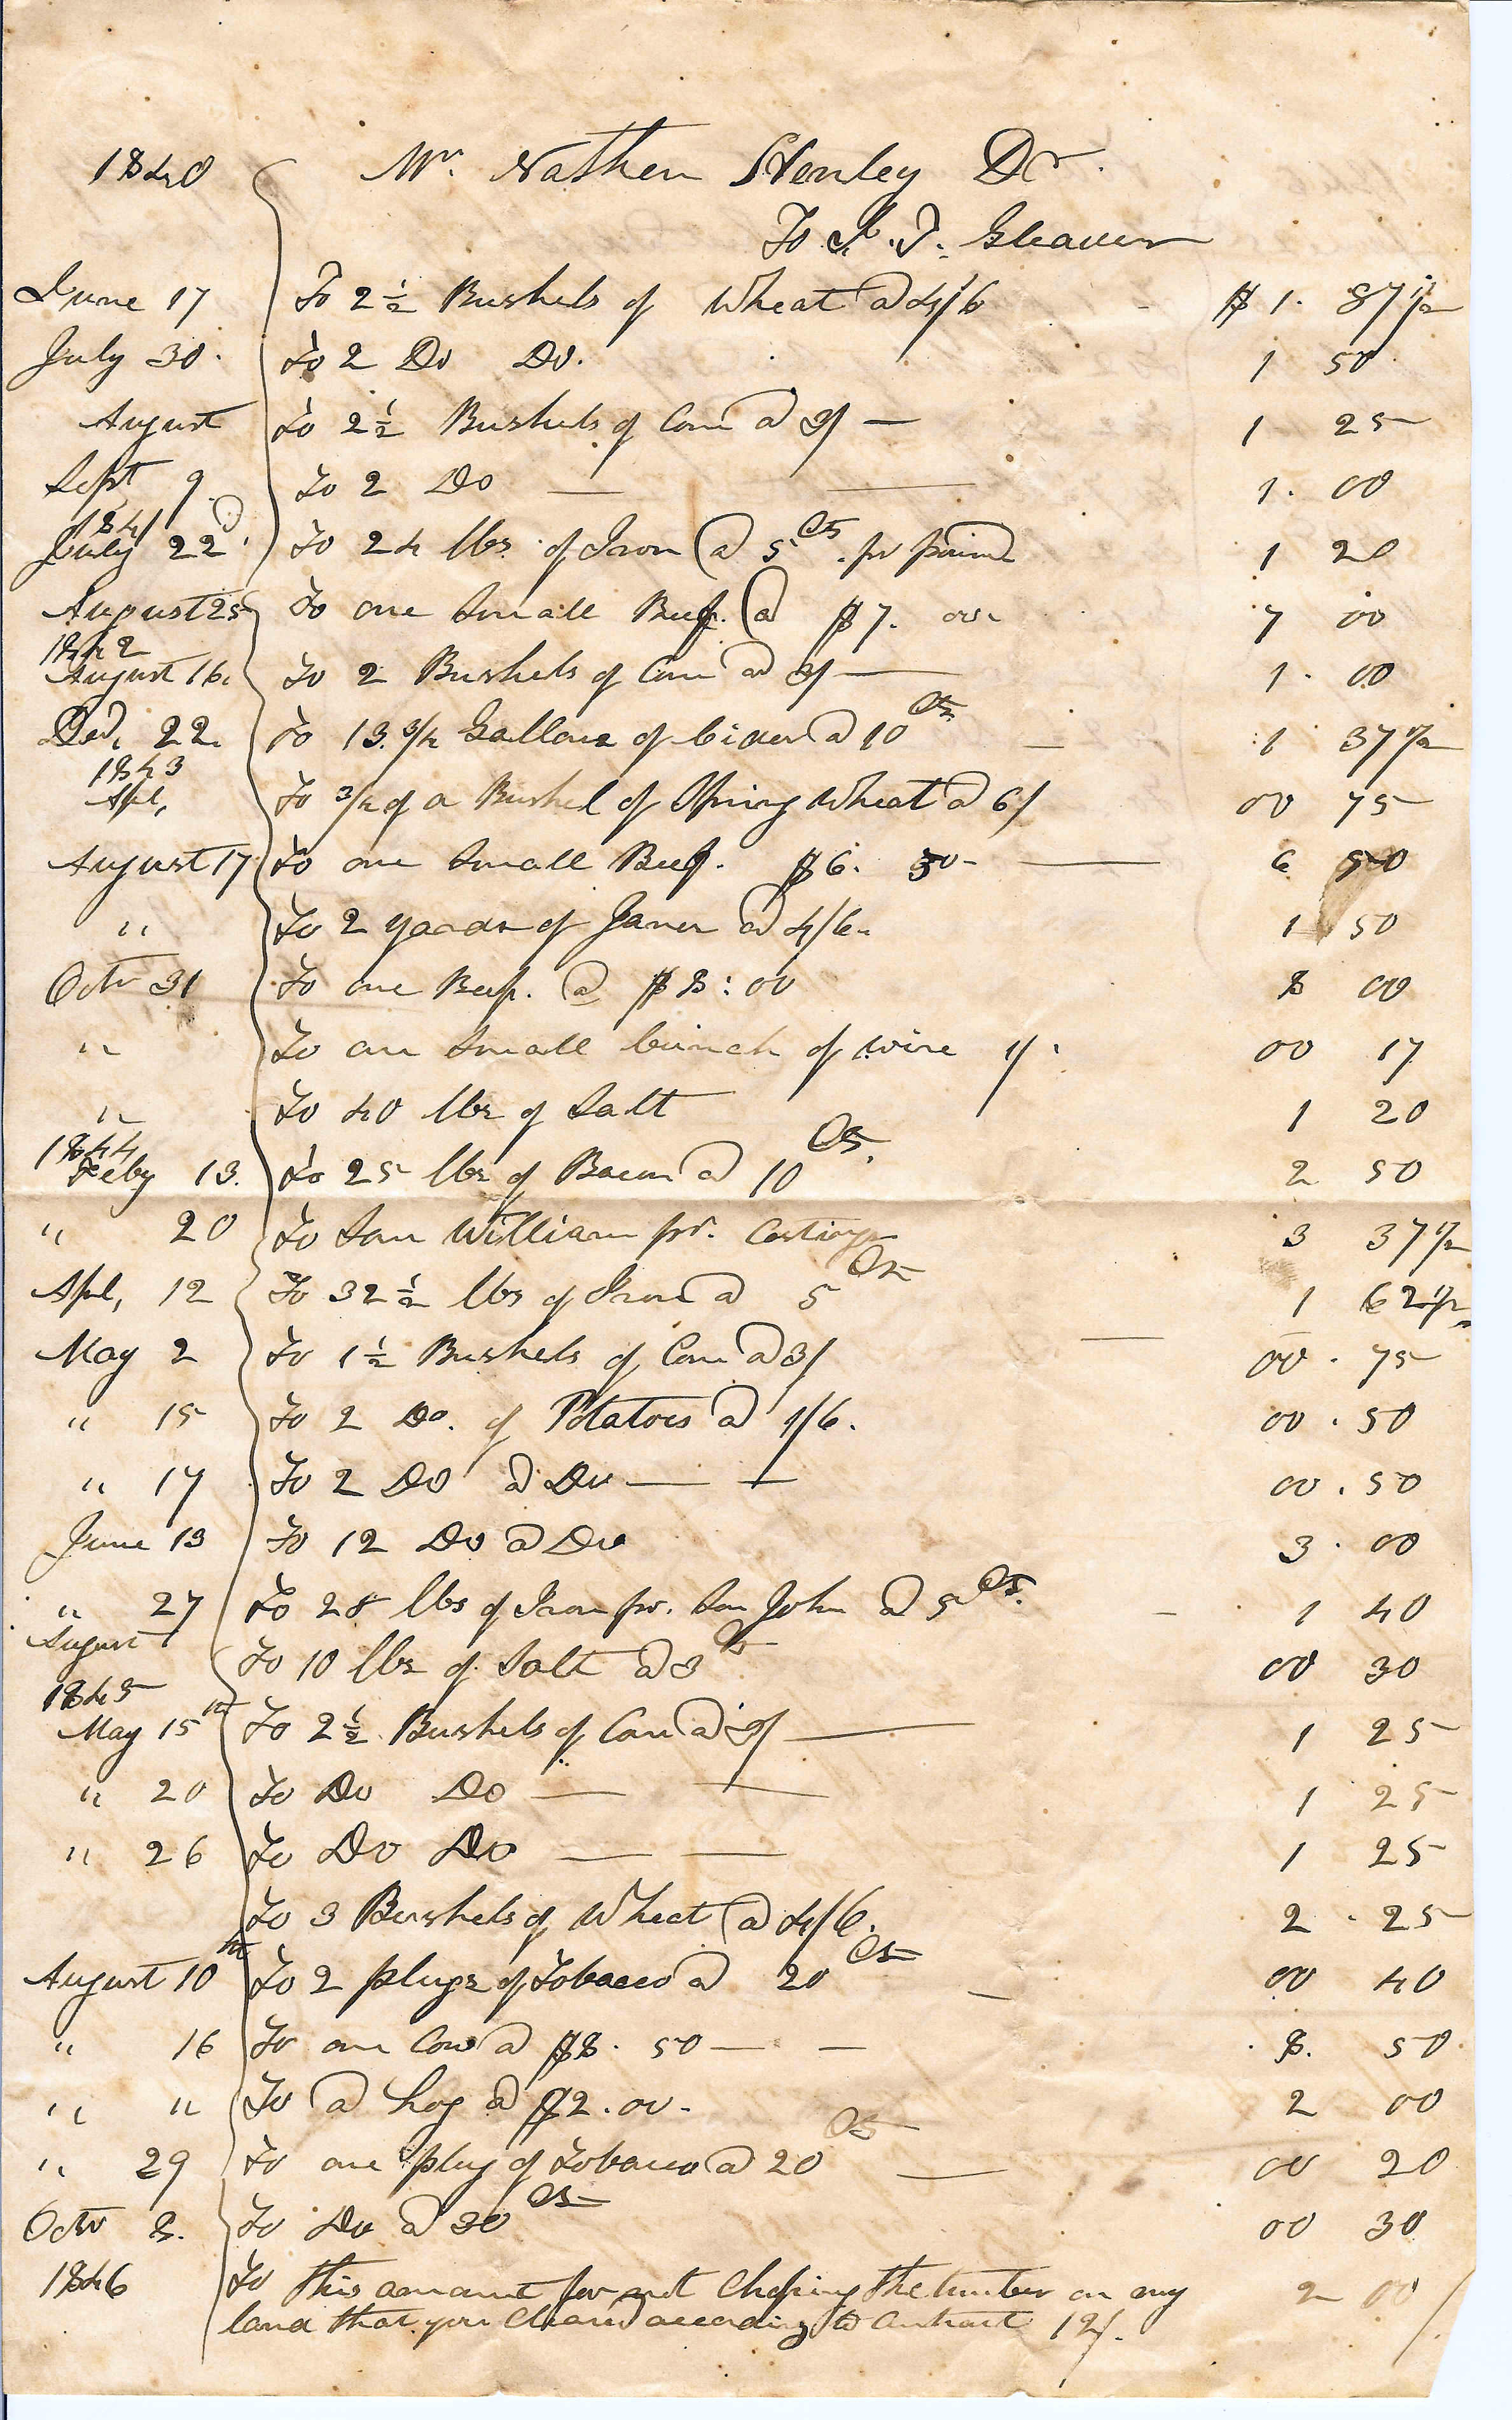 1840 Mr. Nathen Henley Dr.
To J. T. Gleaver
June 17 To 2 1/2 Bushels of Wheat @ 4/6 - $ 1. 87 1/2
July 30. To 2 Do Do. 1 50
August To 2 1/2 Bushels of Corn @ 3/ — 1 25
Sept 9. To 2 Do — — 1. 00
1841
July 22d To 24 lbs. of Iron @ 5 Cts. pr pound 1 20
August 25 To one Small Beef. @ $7. 00 7 00
1842
August 16. To 2 Bushels of Corn @ 3/ — 1. 00
Ded. 22. To 13. 3/4 Gallons of Cider @ 10 Cts. — 1 37 1/2
1843
Apl, To 3/4 of a Bushel of Spring Wheat @ 6/ 00 75
August 17 To one Small Beef. $6. 50 — 6 50
" To 2 yards of Janes @ 4/6. 1 50
Octr 31 To one Beef. @ $8:00 8 00
" To one Small bunch of wire 1/. 00 17
" To 40 lbs of Salt 1 20
1844
Feby 13. To 25 lbs of Bacon @ 10 Cts. 2 50
" 20 To Son William pr. Castings 3 37 1/2
Apl, 12 To 32 1/2 lbs of Iron @ 5 Cts 1 62 1/2
May 2 To 1 1/2 Bushels of Corn @ 3/ — 00. 75
" 15 To 2 Do. of Potatoes @ 1/6. 00. 50
" 17 To 2 Do @ Do — — 00. 50
June 13 To 12 Do @ Do 3. 00
" 27 To 28 lbs of Iron pr. Son John @ 5 Cts. - 1 40
August 1 To 10 lbs of Salt @ 3 Cts 00 30
1845
May 15th To 2 1/2 Bushels of Corn @ 3/ — 1 25
" 20 To Do Do — — 1 25
" 26 To Do Do — — 1 25
To 3 Bushels of Wheat @ 4/6. 2. 25
August 10th To 2 plugs of Tobacco @ 20 Cts — 00 40
" 16 To one Cow @ $8. 50 — — 8. 50
" " To a hog @ $2.00. 2 00
" 29 To one plug of Tobacco @ 20 Cts — 00 20
Octr 8. To Do @ 30 Cts 00 30
1846 To this amount for not Choping the timber on my 2 00
land that you Cleared according to Contract 12/.